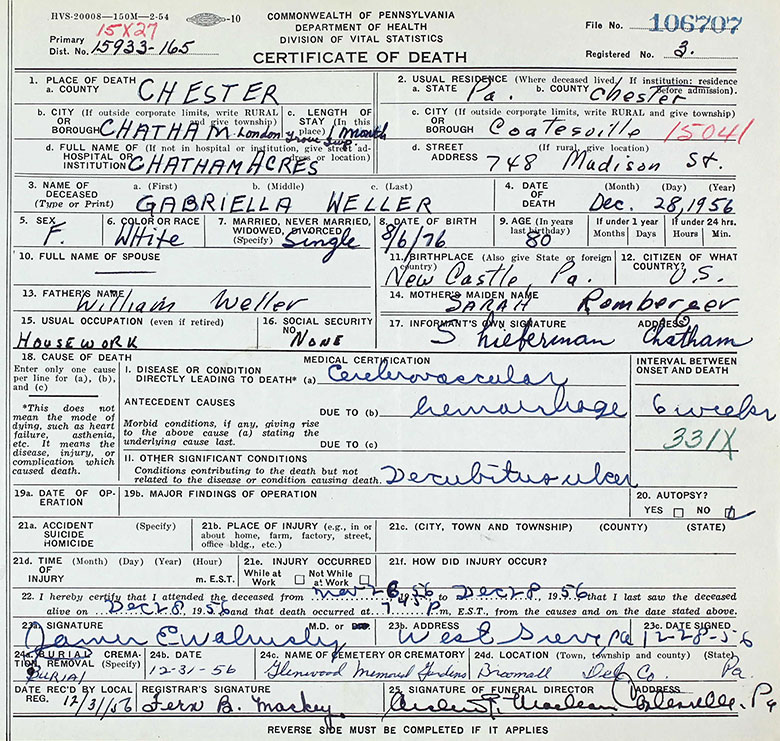 HVS-20008—150M—2-54 -10
COMMONWEALTH OF PENNSYLVANIA
DEPARTMENT OF HEALTH
DIVISION OF VITAL STATISTICS
CERTIFICATE OF DEATH
15X27
Primary
Dist. No. 15933-165
File No. 106707
Registered No. 3.
1. PLACE OF DEATH
a. COUNTY CHESTER
2. USUAL RESIDENCE (Where deceased lived. If institution: residence before admission).
a. STATE Pa. b. COUNTY Chester
b. CITY (If outside corporate limits, write RURAL and give township)
OR
BOROUGH CHATHAM London Grove Twp
c. LENGTH OF STAY (In this place) 1 Month
c. CITY (If outside corporate limits, write RURAL and give township)
OR
BOROUGH Coatesville 15041
d. FULL NAME OF (If not in hospital or institution, give street address or location)
HOSPITAL OR
INSTITUTION CHATHAM ACRES
d. STREET (If rural, give location)
ADDRESS 748 Madison St.
3. NAME OF DECEASED (Type or Print)
a. (First) b. (Middle) c. (Last)
GABRIELLA WELLER
4. DATE OF DEATH (Month) (Day) (Year)
Dec. 28, 1956
5. SEX
F.
6. COLOR OR RACE
White
7. MARRIED, NEVER MARRIED, WIDOWED, DIVORCED (Specify) Single
8. DATE OF BIRTH
8/6/76
9. AGE (In years last birthday)
80
If under 1 year Months Days
If under 24 hrs. Hours Min.
10. FULL NAME OF SPOUSE
11. BIRTHPLACE (Also give State or foreign country)
New Castle, Pa.
12. CITIZEN OF WHAT COUNTRY?
U.S.
13. FATHER'S NAME
William Weller
14. MOTHER'S MAIDEN NAME
SARAH Romberger
15. USUAL OCCUPATION (even if retired)
HOUSEWORK
16. SOCIAL SECURITY NO.
NONE
17. INFORMANT'S OWN SIGNATURE ADDRESS
S Lieberman Chatham
18. CAUSE OF DEATH
Enter only one cause per line for (a), (b), and (c)
*This does not mean the mode of dying, such as heart failure, asthenia, etc. It means the disease, injury, or complication which caused death.
MEDICAL CERTIFICATION
I. DISEASE OR CONDITION
DIRECTLY LEADING TO DEATH* (a) Cerebrovascular
ANTECEDENT CAUSES
DUE TO (b) hemorrhage
Morbid conditions, if any, giving rise to the above cause (a) stating the underlying cause last.
DUE TO (c)
II. OTHER SIGNIFICANT CONDITIONS
Conditions contributing to the death but not related to the disease or condition causing death. Decubitus ulcer
INTERVAL BETWEEN ONSET AND DEATH
6 weeks
331X
19a. DATE OF OPERATION
19b. MAJOR FINDINGS OF OPERATION
20. AUTOPSY?
YES NO
21a. ACCIDENT SUICIDE HOMICIDE (Specify)
21b. PLACE OF INJURY (e.g., in or about home, farm, factory, street, office bldg., etc.)
21c. (CITY, TOWN AND TOWNSHIP) (COUNTY) (STATE)
21d. TIME OF INJURY (Month) (Day) (Year) (Hour) m. E.S.T.
21e. INJURY OCCURRED
While at Work Not While at Work
21f. HOW DID INJURY OCCUR?
22. I hereby certify that I attended the deceased from Nov 26, 1956 to Dec 28, 1956 that I last saw the deceased
alive on Dec 28, 1956 and that death occurred at 7 45 P m., E.S.T., from the causes and on the date stated above.
23a. SIGNATURE M.D. or D.O.
James E Walmsley
23b. ADDRESS
West Grove Pa
23c. DATE SIGNED
12-28-56
24a. BURIAL, CREMATION, REMOVAL (Specify)
BURIAL
24b. DATE
12-31-56
24c. NAME OF CEMETERY OR CREMATORY
Glenwood Memorial Gardens
24d. LOCATION (Town, township and county) (State)
Broomall Del. Co. Pa.
DATE REC'D BY LOCAL REG. 12/31/56
REGISTRAR'S SIGNATURE
Fern B. Mackey
25. SIGNATURE OF FUNERAL DIRECTOR ADDRESS
Maclean Coatesville, Pa
REVERSE SIDE MUST BE COMPLETED IF IT APPLIES